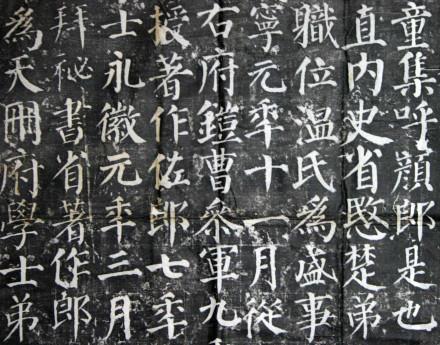 童集呼顔郎是也
直内史省愍楚弟
職位温氏爲盛事
寧元年十一月從
右府鎧曹叅軍九
授著作佐郎七年
士永徽元年三月
拜秘書省著作郎
爲天冊府學士弟